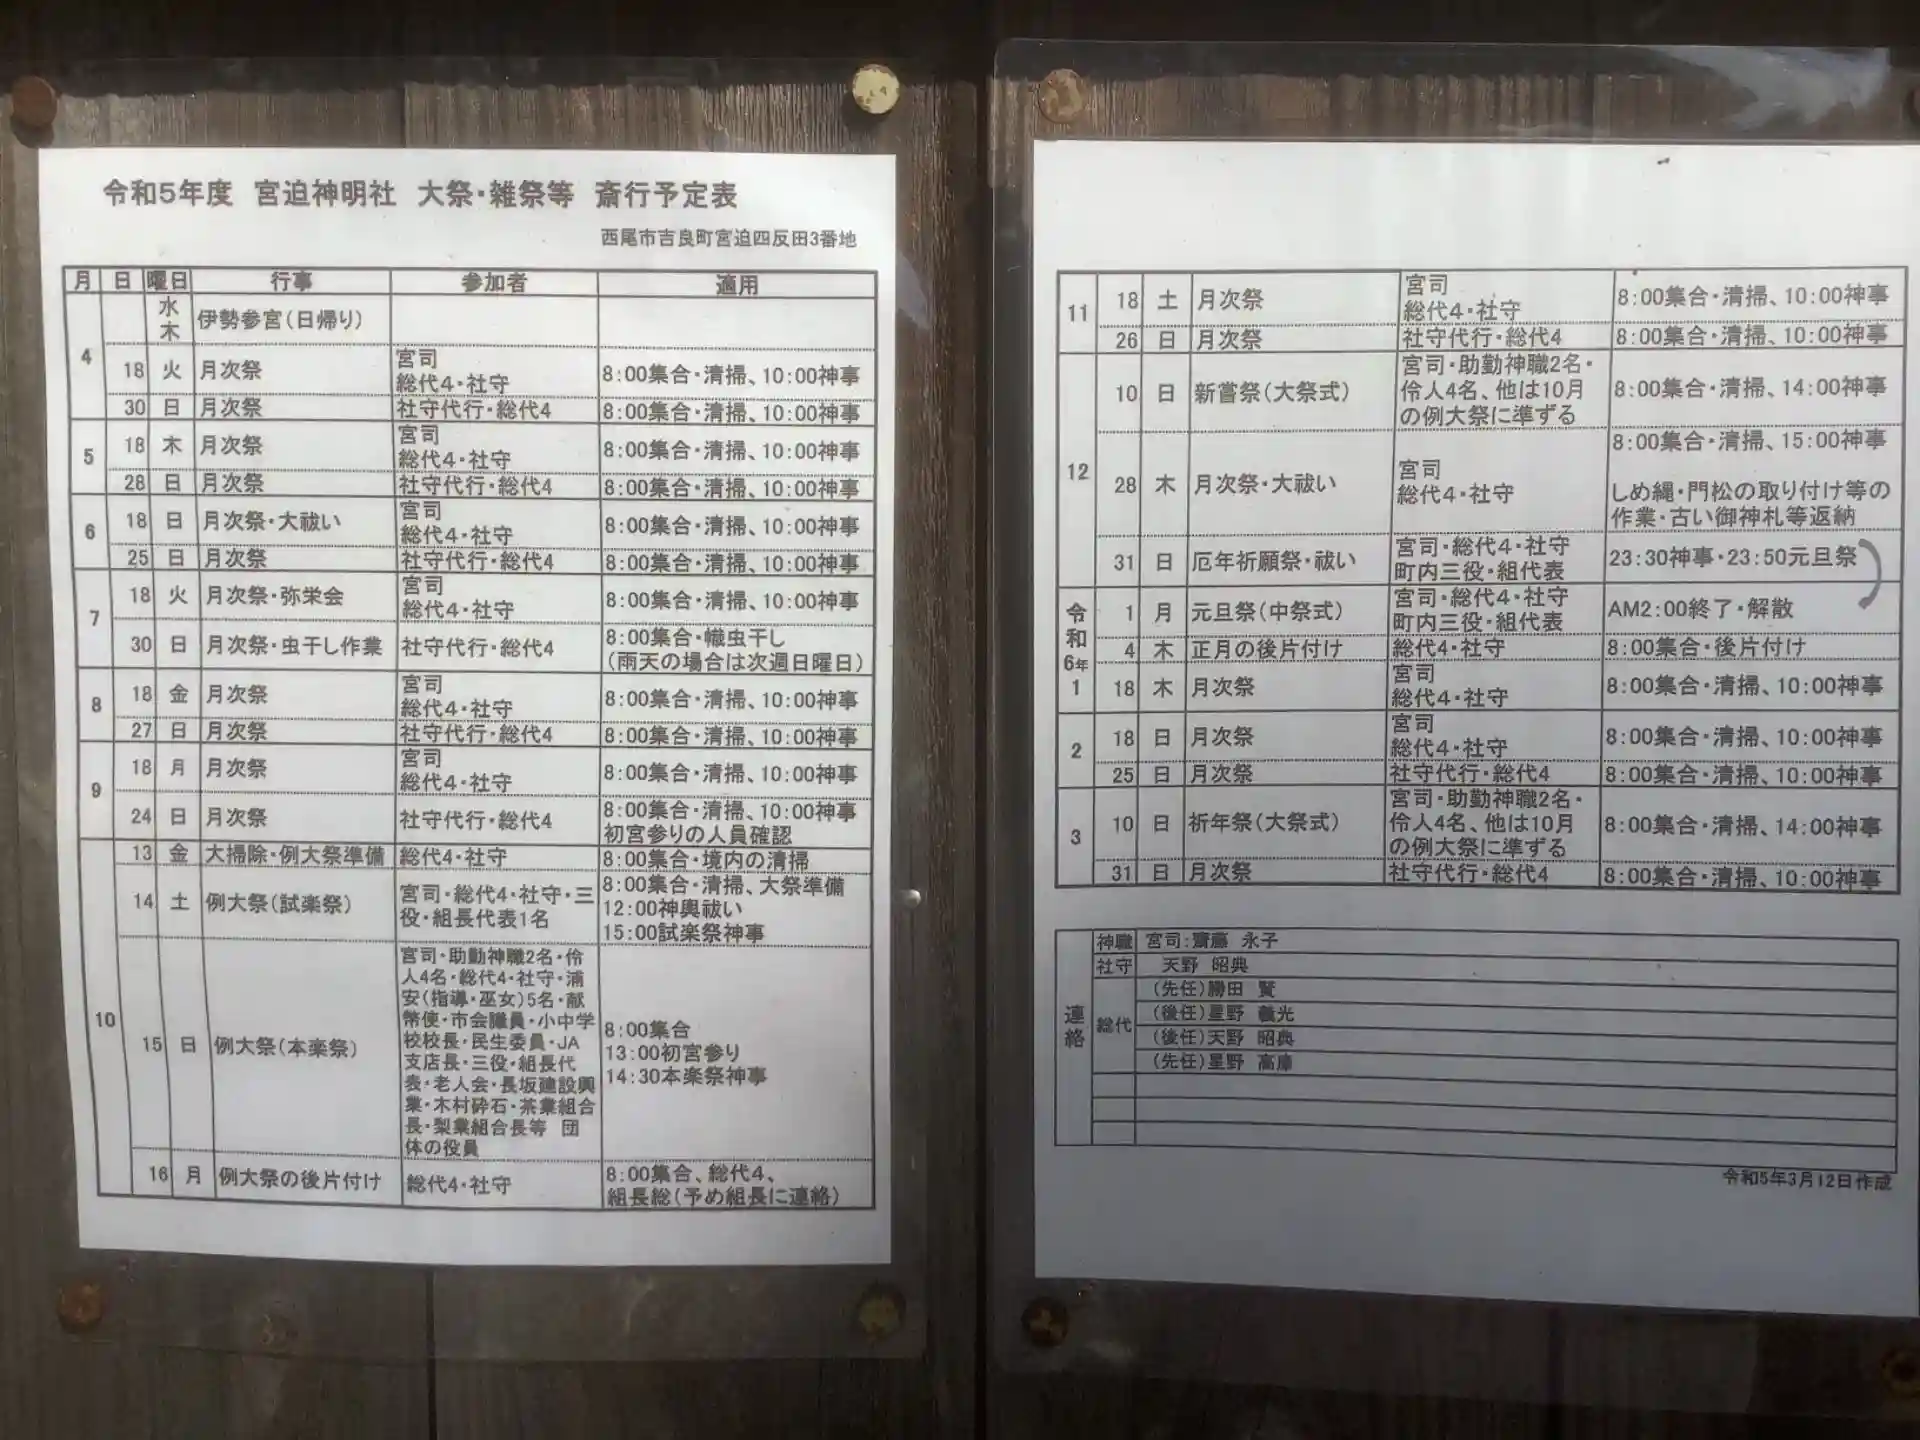 令和5年度 宮迫神明社 大祭・雑祭等 斎行予定表
西尾市吉良町宮迫四反田3番地
月 日 曜日 行事 参加者 適用
4
水
木
伊勢参宮(日帰り)
18 火 月次祭
宮司
総代4・社守
8:00集合・清掃、10:00神事
30 日 月次祭 社守代行・総代4 8:00集合・清掃、10:00神事
5
18 木 月次祭
宮司
総代4・社守
8:00集合・清掃、10:00神事
28 日 月次祭 社守代行・総代4 8:00集合・清掃、10:00神事
6
18 日 月次祭・大祓い
宮司
総代4・社守
8:00集合・清掃、10:00神事
25 日 月次祭 社守代行・総代4 8:00集合・清掃、10:00神事
7
18 火 月次祭・弥栄会
宮司
総代4・社守
8:00集合・清掃、10:00神事
30 日 月次祭・虫干し作業 社守代行・総代4
8:00集合・幟虫干し
(雨天の場合は次週日曜日)
8
18 金 月次祭
宮司
総代4・社守
8:00集合・清掃、10:00神事
27 日 月次祭 社守代行・総代4 8:00集合・清掃、10:00神事
9
18 月 月次祭
宮司
総代4・社守
8:00集合・清掃、10:00神事
24 日 月次祭 社守代行・総代4
8:00集合・清掃、10:00神事
初宮参りの人員確認
10
13 金 大掃除・例大祭準備 総代4・社守 8:00集合・境内の清掃
14 土 例大祭(試楽祭)
宮司・総代4・社守・三
役・組長代表1名
8:00集合・清掃、大祭準備
12:00神輿祓い
15:00試楽祭神事
15 日 例大祭(本楽祭)
宮司・助勤神職2名・伶
人4名・総代4・社守・浦
安(指導・巫女)5名・献
幣使・市会議員・小中学
校校長・民生委員・JA
支店長・三役・組長代
表・老人会・長坂建設興
業・木村砕石・茶業組合
長・梨業組合長等 団
体の役員
8:00集合
13:00初宮参り
14:30本楽祭神事
16 月 例大祭の後片付け 総代4・社守
8:00集合、総代4、
組長総(予め組長に連絡)
11
18 土 月次祭
宮司
総代4・社守
8:00集合・清掃、10:00神事
26 日 月次祭 社守代行・総代4 8:00集合・清掃、10:00神事
12
10 日 新嘗祭(大祭式)
宮司・助勤神職2名・
伶人4名、他は10月
の例大祭に準ずる
8:00集合・清掃、14:00神事
28 木 月次祭・大祓い
宮司
総代4・社守
8:00集合・清掃、15:00神事
しめ縄・門松の取り付け等の
作業・古い御神札等返納
31 日 厄年祈願祭・祓い
宮司・総代4・社守
町内三役・組代表
23:30神事・23:50元旦祭
令和6年
1
1 月 元旦祭(中祭式)
宮司・総代4・社守
町内三役・組代表
AM2:00終了・解散
4 木 正月の後片付け 総代4・社守 8:00集合・後片付け
18 木 月次祭
宮司
総代4・社守
8:00集合・清掃、10:00神事
2
18 日 月次祭
宮司
総代4・社守
8:00集合・清掃、10:00神事
25 日 月次祭 社守代行・総代4 8:00集合・清掃、10:00神事
3
10 日 祈年祭(大祭式)
宮司・助勤神職2名・
伶人4名、他は10月
の例大祭に準ずる
8:00集合・清掃、14:00神事
31 日 月次祭 社守代行・総代4 8:00集合・清掃、10:00神事
連絡
神職 宮司:齋藤 永子
社守 天野 昭典
総代
(先任)勝田 賢
(後任)星野 義光
(後任)天野 昭典
(先任)星野 高庫
令和5年3月12日作成